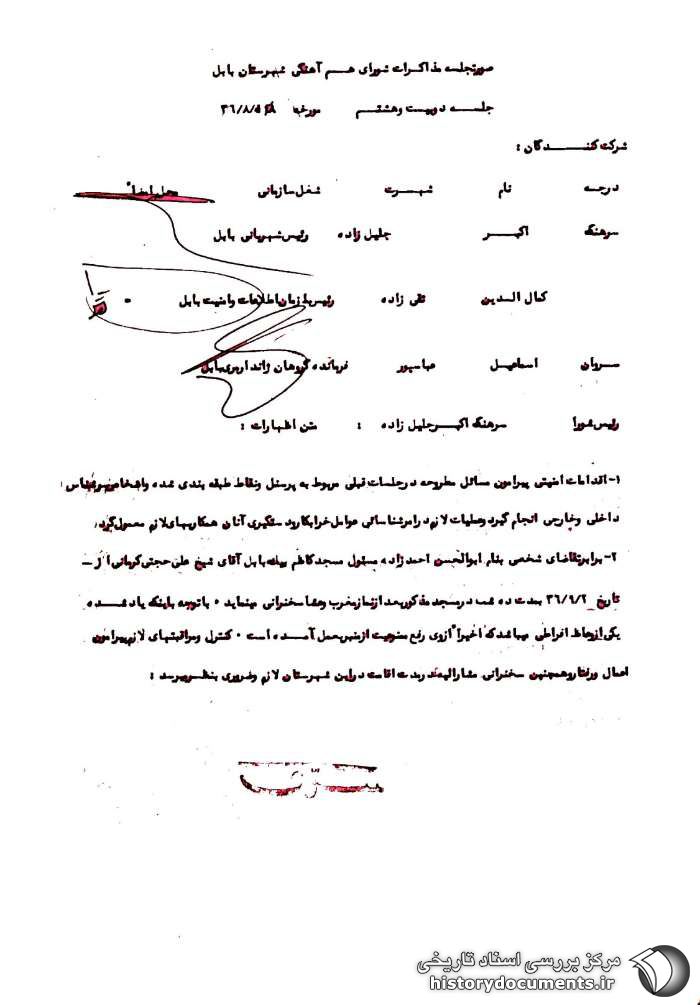 صورتجلسه مذاکرات شورای هم آهنگی شهرستان بابل
جلسه دویست وهشتم مورخه ۳۶/۸/۵
شرکت کنندگان :
درجه نام شهرت شغل سازمانی محل امضاء
سرهنگ اکبر جلیل زاده رئیس شهربانی بابل
کمال الدین تقی زاده رئیس سازمان اطلاعات وامنیت بابل
سروان اسماعیل عباسپور فرمانده گروهان ژاندارمری بابل
رئیس شورا سرهنگ اکبر جلیل زاده : متن اظهارات :
۱- اقدامات امنیتی پیرامون مسائل مطروحه در جلسات قبلی مربوط به پرسنل ونقاط طبقه بندی شده واشخاص سرشناس
داخلی وخارجی انجام گیرد وعملیات لازم در امر شناسائی عوامل خرابکار ودستگیری آنان همکاریهای لازم معمول گردد
۲- برابر تقاضای شخصی بنام ابوالحسن احمدزاده مسئول مسجد کاظم بیک بابل آقای شیخ علی حجتی کرمانی از -
تاریخ ۳۶/۹/۲ بمدت ده شب در مسجد مذکور بعد از نماز مغرب وعشا سخنرانی مینماید ۰ با توجه باینکه یاد شده
یکی از وعاظ افراطی میباشد که اخیراً از وی رفع ممنوعیت از منبر بعمل آمده است ۰ کنترل ومراقبتهای لازم پیرامون
اعمال ورفتار وهمچنین سخنرانی مشارالیه در مدت اقامت در این شهرستان لازم وضروری بنظر میرسد :
مرکز بررسی اسناد تاریخی
historydocuments.ir